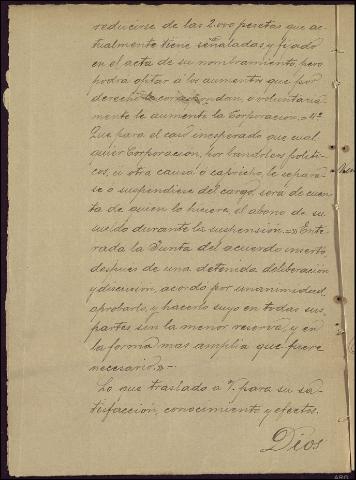 reducirse de las 2.000 pesetas que ac-
tualmente tiene señaladas y fijado
en el acta de su nombramiento, pero
podrá optar á los aumentos que por
derecho le correspondan, o voluntaria-
mente le aumente la Corporación. = 4º
Que para el caso inesperado que cual
quier Corporación, por bandolas políti-
cos, ú otra causa ó capricho, le separa-
se o suspendiese del cargo, será de cuen
ta de quien lo hiciere, el abono de su
sueldo durante la suspensión. =» Ente-
rada la Junta del acuerdo inserto,
despues de una detenida deliberación
y discusión, acordo por unanimidad
aprobarlo, y hacerlo suyo en todas sus
partes sin la menor reserva, y en
la forma mas amplia que fuere
necesario.» -
Lo que traslado a V. para su sa-
tisfacción, conocimiento y efectos.
Dios